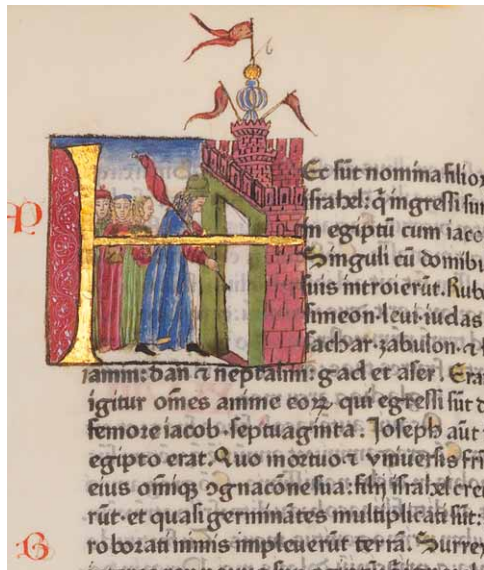 Ec sūt nomina filior
israhel: q̄ ingressi sun
in egiptū cum iaco
Singuli cū domibu
suis introierūt. Rub
simeon·leui·iudas
sachar·zabulon·⁊
iamin: dan ⁊ neptalim: gad et aser. Era
igitur om̄es anime eoꝝ qui egressi sūt d
femore iacob·septuaginta. Joseph aūt
egipto erat. Quo mortuo ⁊ vniuersis fr̄i
eius om̄iqꝫ ꝯgnac̄one sua: filij israhel cre
rūt·et quasi germinātes multiplicati sūt:
roborati nimis impleuerūt terrā. Surrex